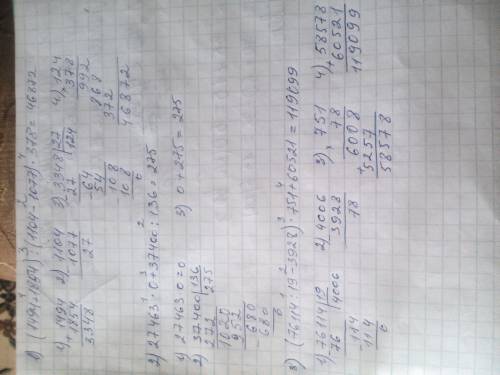 1) (1494+1854) : (1104-1077) · 378 = 46872
1) + 1494
1854
3348
2) - 1104
1077
27
3) 3348 | 27
27 | 124
- 64
54
108
108
0
4) × 124
378
992
868
372
46872
2) 27463 · 0 + 37400 : 136 = 275
1) 27463 · 0 = 0
2) 37400 | 136
272 | 275
1020
952
680
680
0
3) 0 + 275 = 275
3) (76114 : 19 - 3928) · 751 + 60521 = 119099
1) - 76114 | 19
76 | 4006
- 114
114
0
2) 4006
3928
78
3) × 751
78
6008
+ 5257
58578
4) + 58578
60521
119099